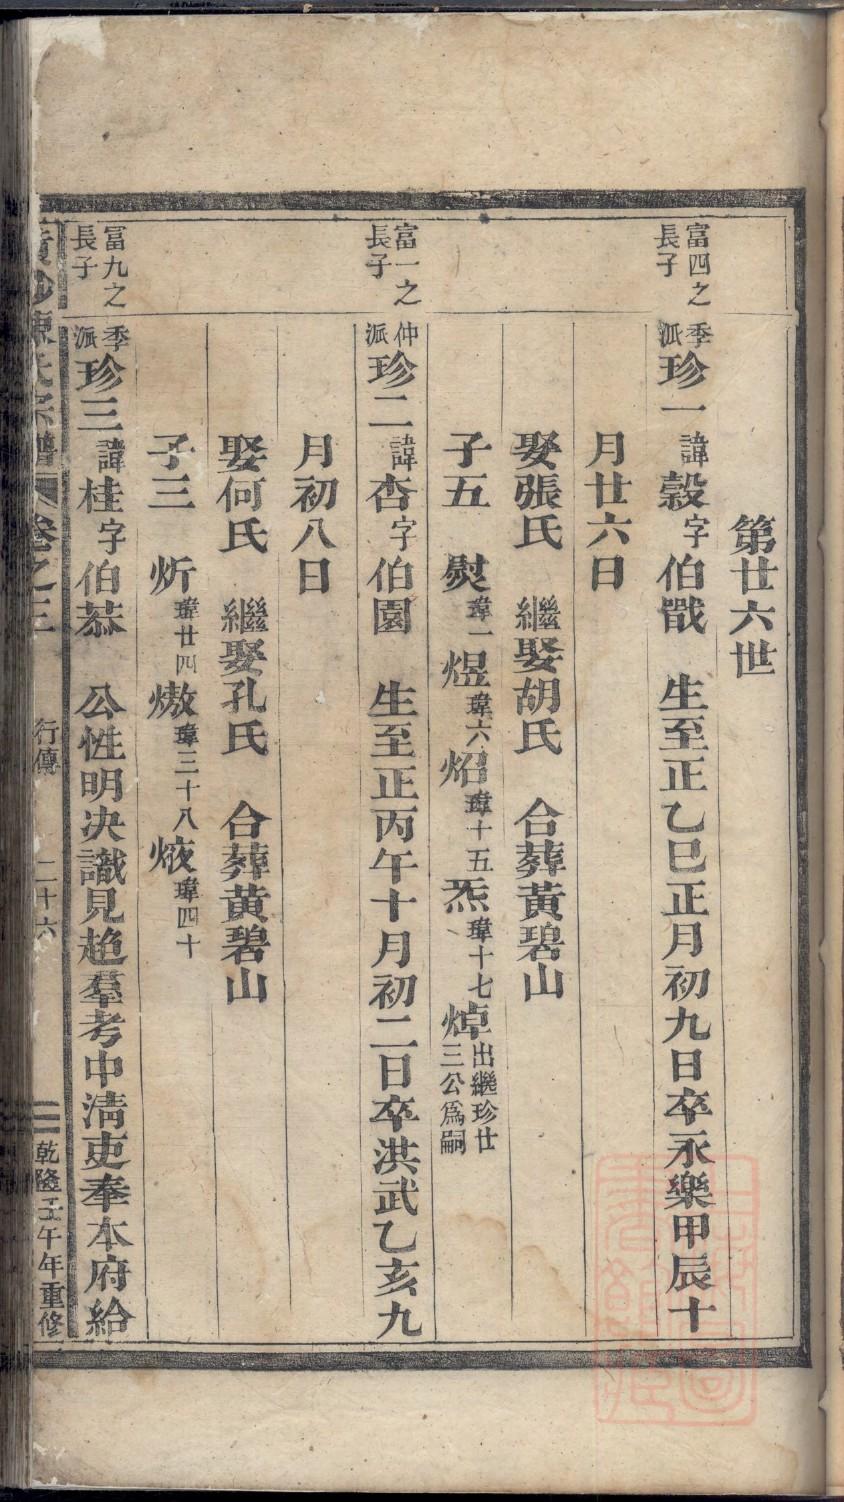 第廿六世
富四之長子
季派珍一諱榖字伯戩　生至正乙巳正月初九日卒永樂甲辰十
月廿六日
娶張氏　繼娶胡氏　合葬黃碧山
子五　熨瑋一煜瑋六炤瑋十五炁瑋十七焯出繼珍廿三公爲嗣
富一之長子
仲派珍二諱杏字伯園　生至正丙午十月初二日卒洪武乙亥九
月初八日
娶何氏　繼娶孔氏　合葬黃碧山
子三　炘瑋廿四熾瑋三十八焲瑋四十
冨九之長子
季派珍三諱桂字伯恭　公性明决識見趍羣考中清吏奉本府給
陳氏宗譜　卷之三　行傳　二十六　乾隆壬午年重修